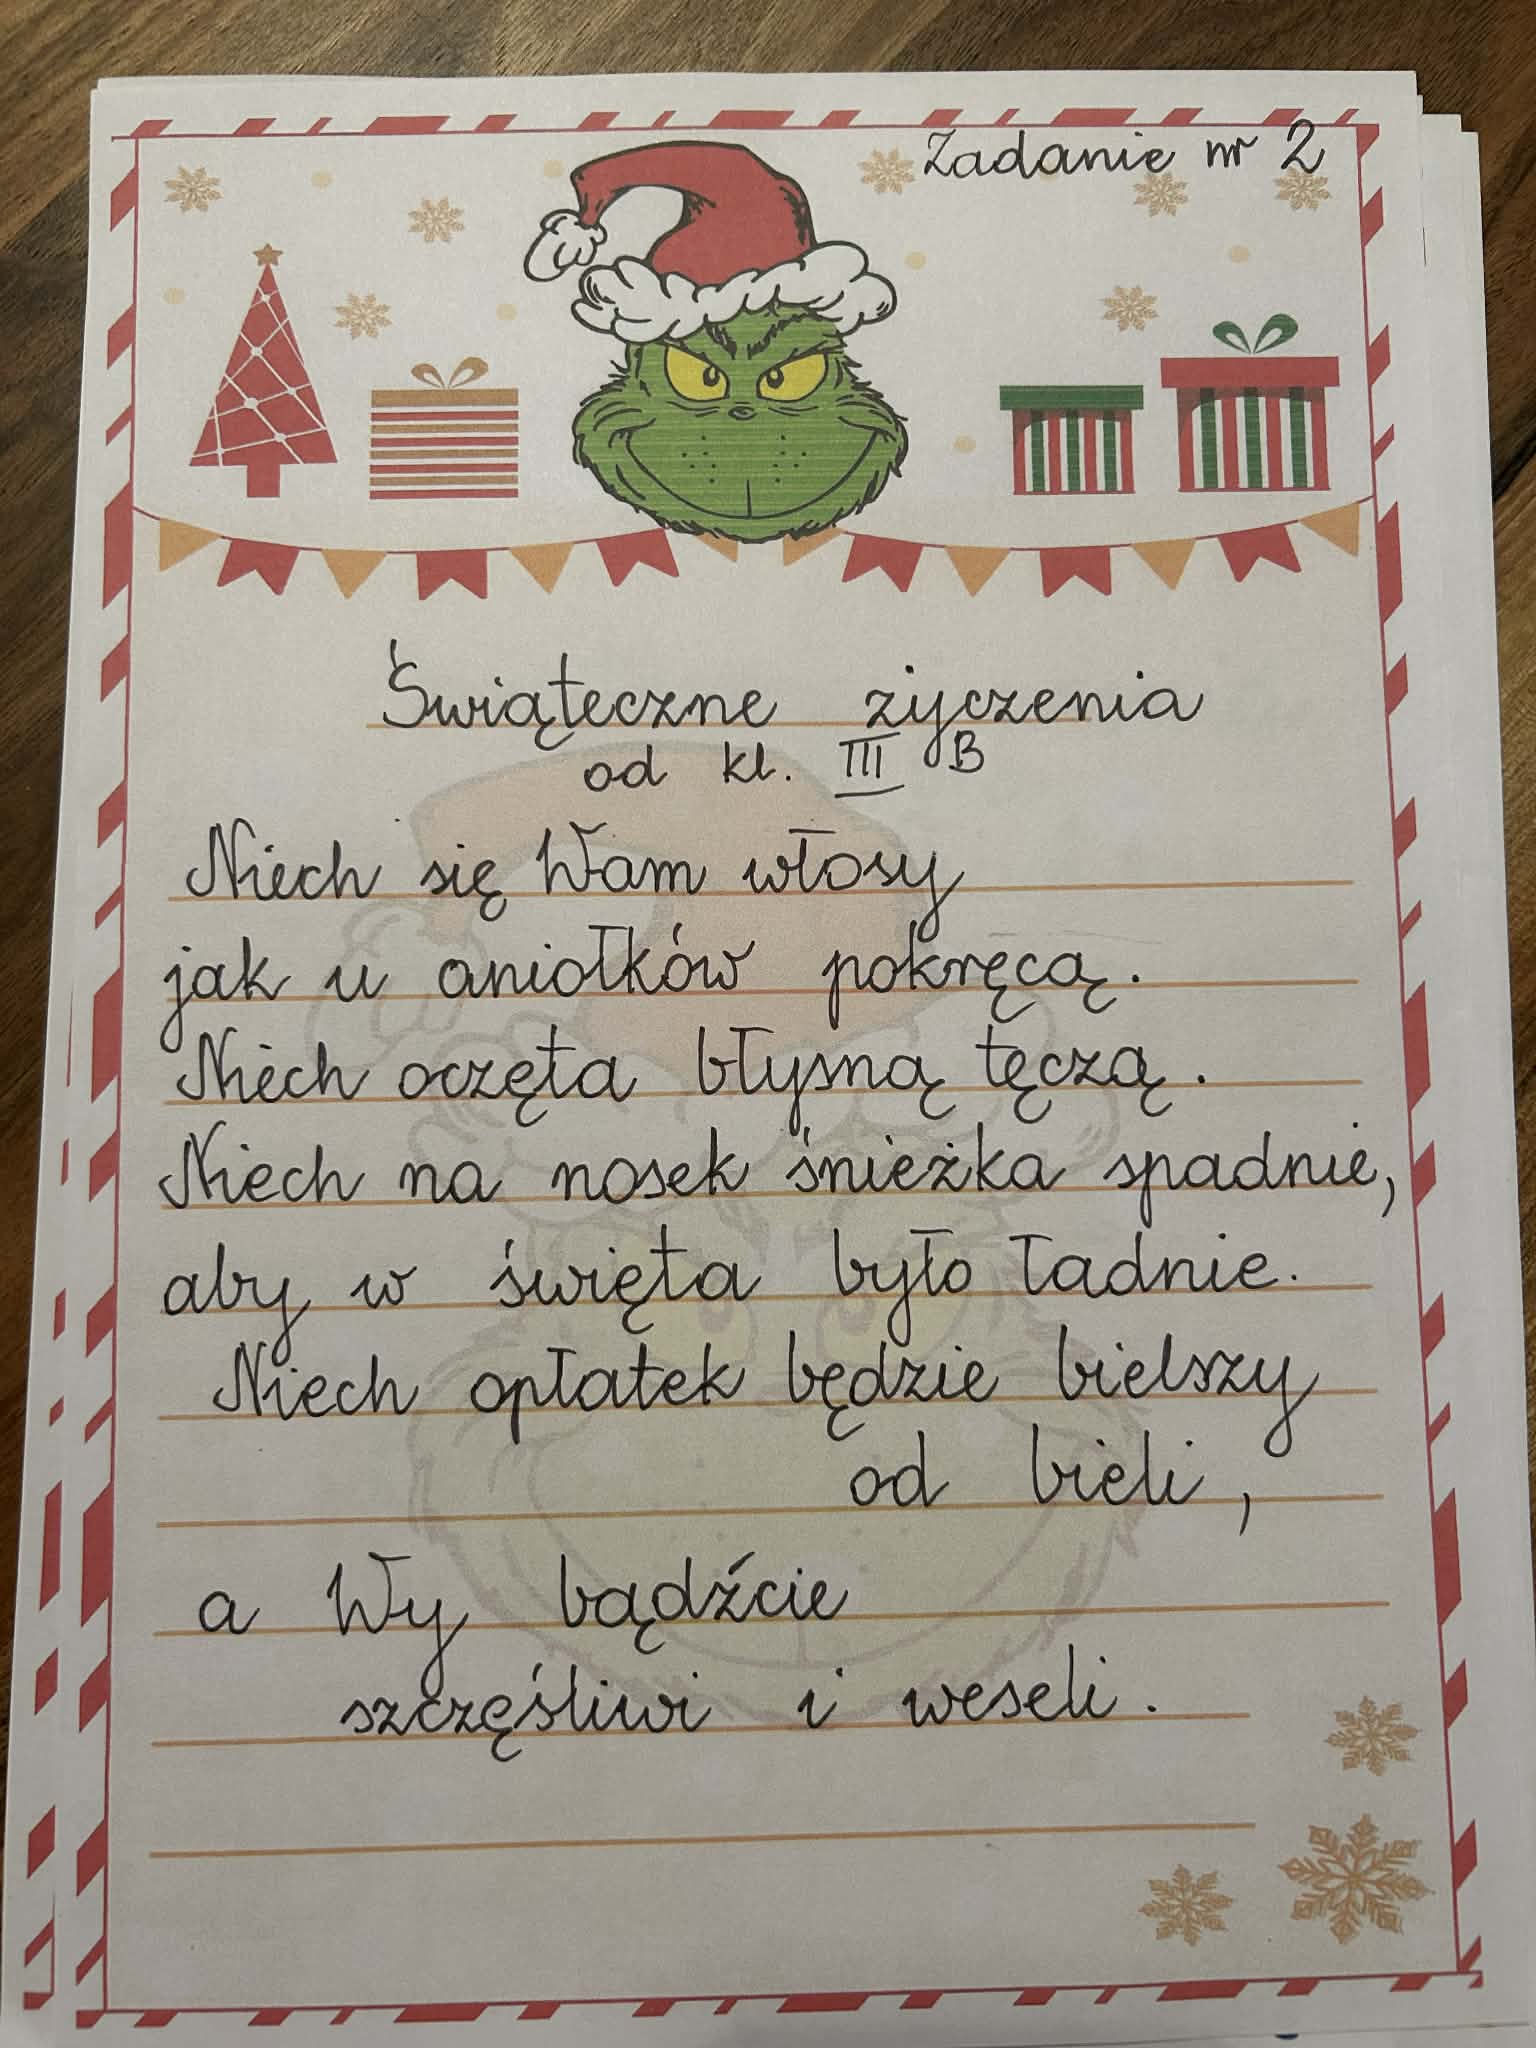 Zadanie nr 2
Świąteczne życzenia
od kl. III B
Niech się Wam włosy
jak u aniołków pokręcą.
Niech oczęta błysną tęczą.
Niech na nosek śnieżka spadnie,
aby w święta było ładnie.
Niech opłatek będzie bielszy
od bieli,
a Wy bądźcie
szczęśliwi i weseli.